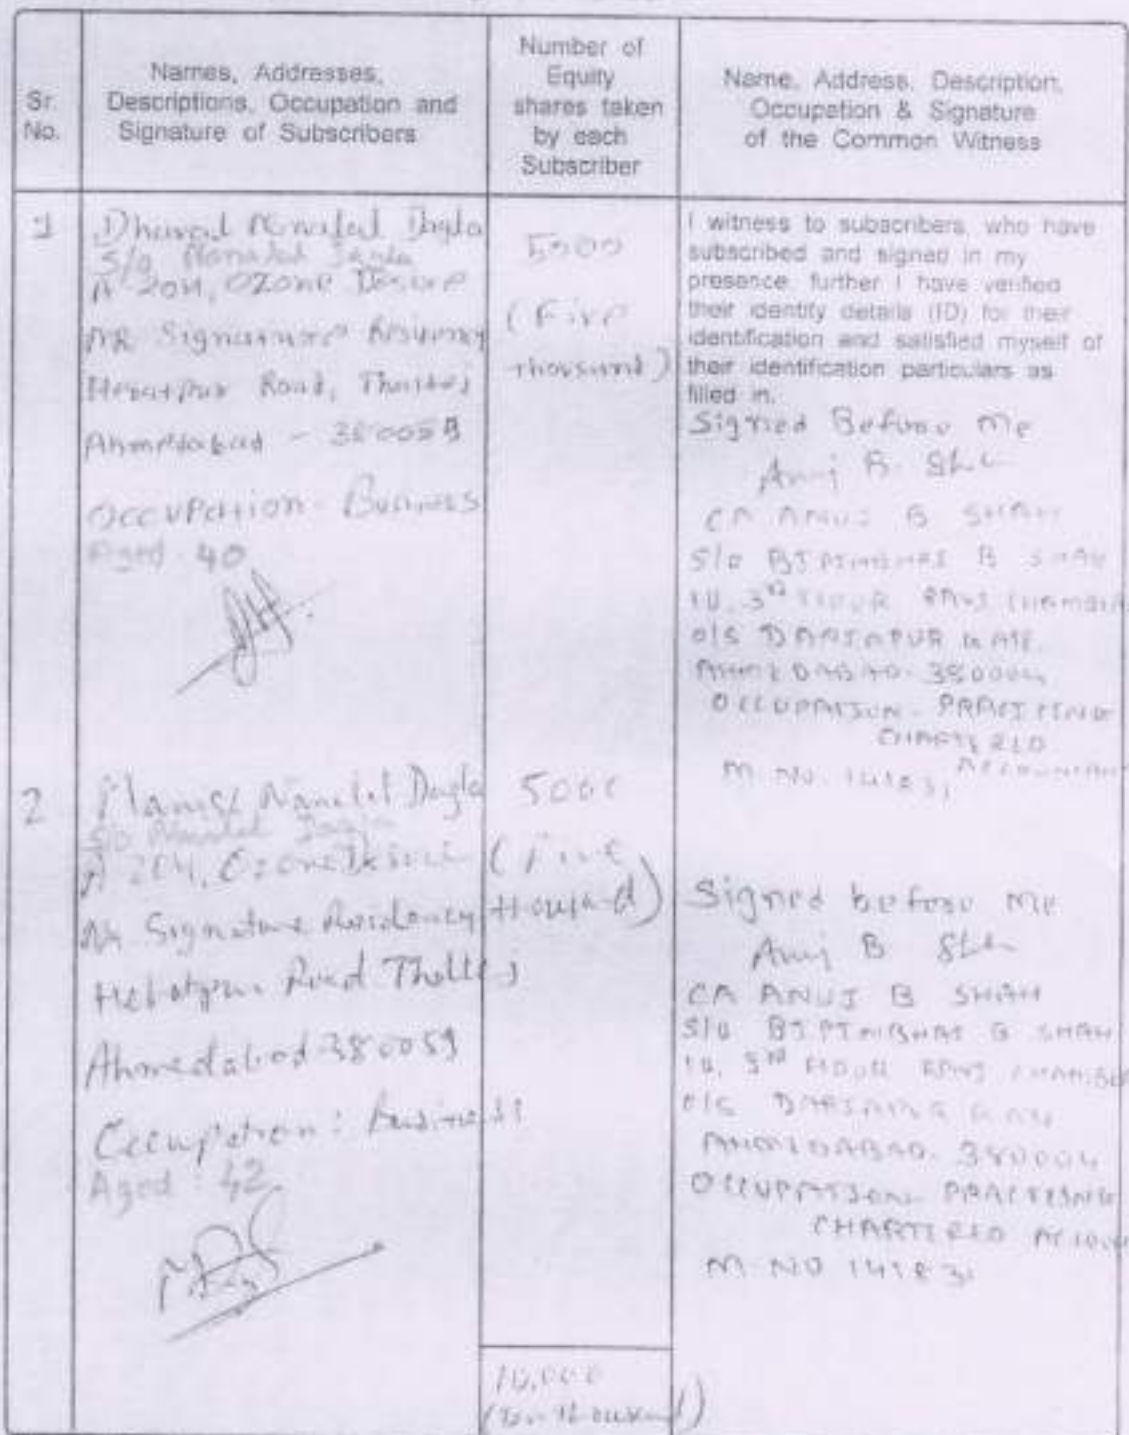 Sr. No.
Names, Addresses,
Descriptions, Occupation and
Signature of Subscribers
Number of
Equity
shares taken
by each
Subscriber
Name, Address, Description,
Occupation & Signature
of the Common Witness
1
Dhaval Nanalal Dagla
S/o Nanalal Dagla
A 204, Ozone Desire
Nr Signature Residency
Hebatpur Road, Thaltej
Ahmedabad - 380059
Occupation - Business
Aged - 40
5000
(Five
thousand)
I witness to subscribers, who have
subscribed and signed in my
presence, further I have verified
their identity details (ID) for their
identification and satisfied myself of
their identification particulars as
filled in.
Signed Before me
Anuj B. Shah
CA ANUJ B SHAH
S/o BIPINBHAI B SHAH
3rd FLOOR CHAMBER
O/S DARIAPUR GATE
AHMEDABAD. 380004
OCCUPATION - PRACTISING
CHARTERED
ACCOUNTANT
M. NO. 141831
2
Nanalal Dagla
S/o Nanalal Dagla
A 204, Ozone Desire
Nr Signature Residency
Hebatpur Road Thaltej
Ahmedabad 380059
Occupation: Business
Aged: 42
5000
(Five
thousand)
Signed before me
Anuj B Shah
CA ANUJ B SHAH
S/o BIPINBHAI B SHAH
3rd FLOOR CHAMBER
O/S DARIAPUR GATE
AHMEDABAD. 380004
OCCUPATION - PRACTISING
CHARTERED
M. NO 141831
10,000
(Ten thousand)